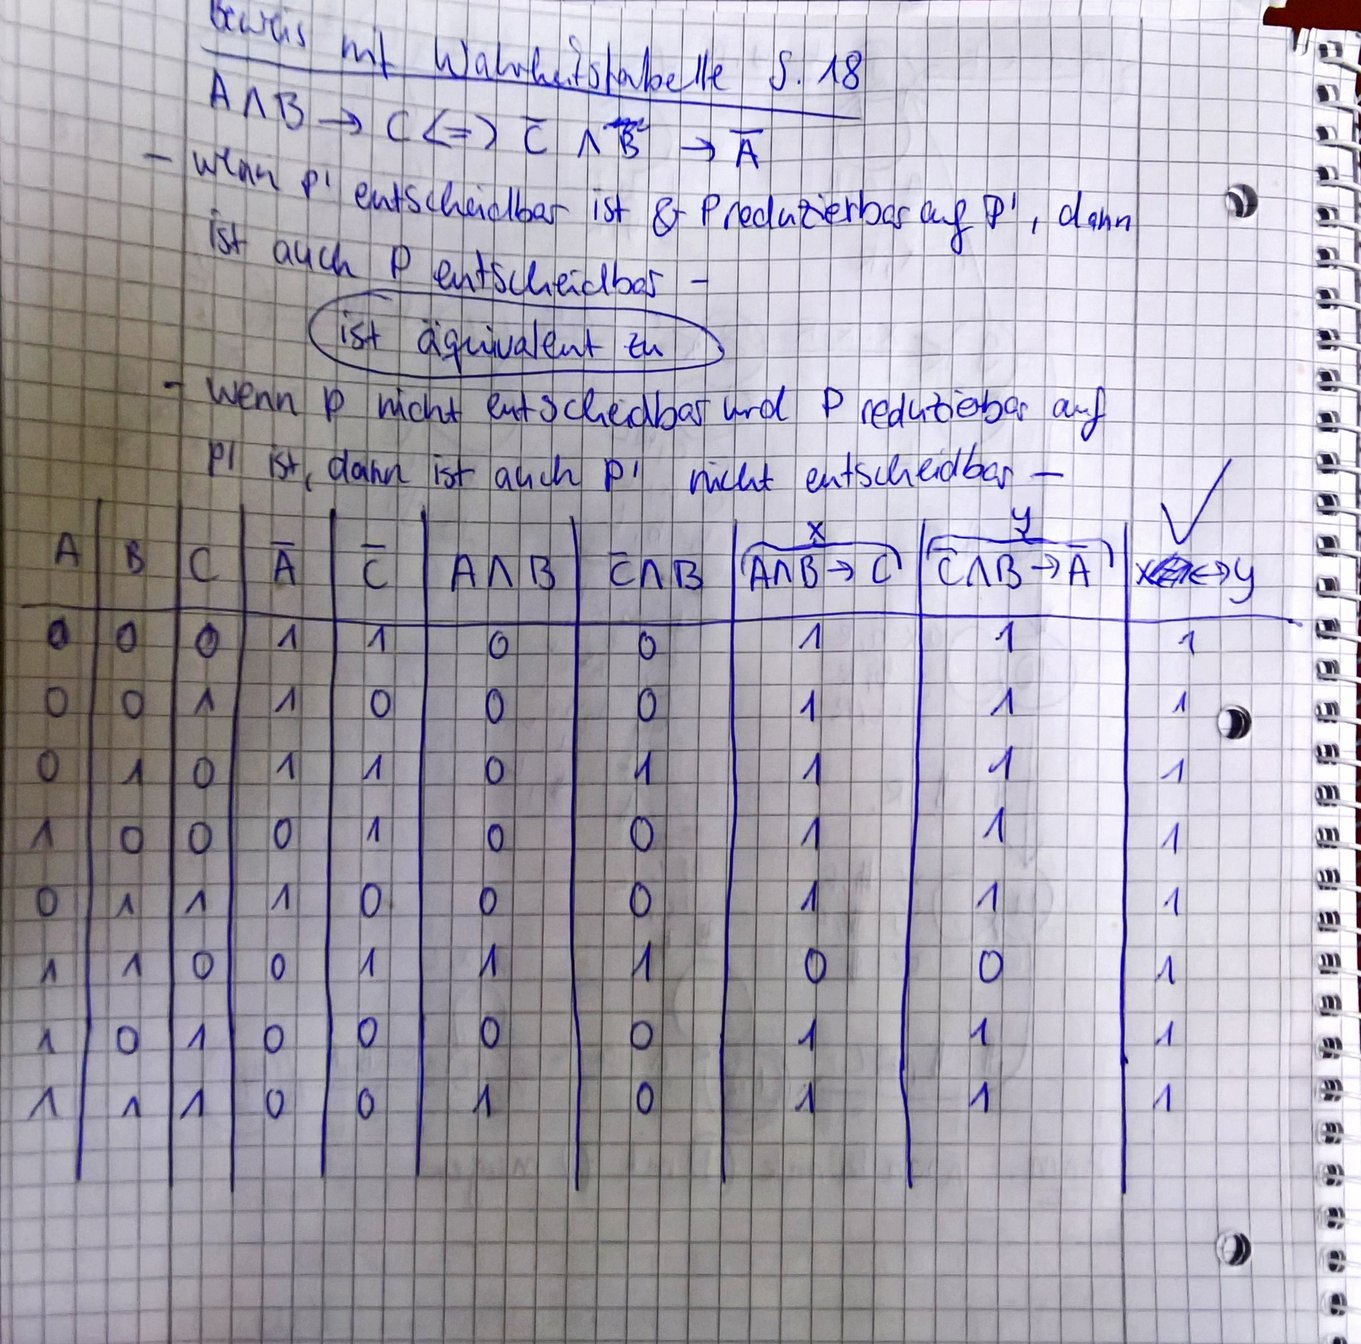 Beweis mit Wahrheitstabelle S. 18
A∧B → C <=> C̅ ∧ B → A̅
- wenn P' entscheidbar ist & P reduzierbar auf P', dann
ist auch P entscheidbar -
ist äquivalent zu
- wenn P nicht entscheidbar und P reduzierbar auf
P' ist, dann ist auch P' nicht entscheidbar -
x y
A B C A̅ C̅ A∧B C̅∧B A∧B→C C̅∧B→A̅ x<->y
0 0 0 1 1 0 0 1 1 1
0 0 1 1 0 0 0 1 1 1
0 1 0 1 1 0 1 1 1 1
1 0 0 0 1 0 0 1 1 1
0 1 1 1 0 0 0 1 1 1
1 1 0 0 1 1 1 0 0 1
1 0 1 0 0 0 0 1 1 1
1 1 1 0 0 1 0 1 1 1